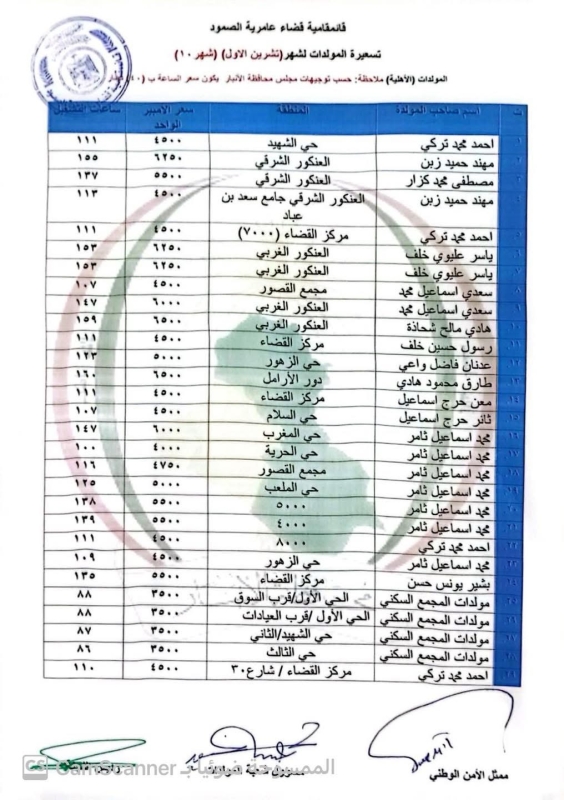 قائمقامية قضاء عامرية الصمود
تسعيرة المولدات لشهر (تشرين الاول) (شهر ١٠)
المولدات (الأهلية) ملاحظة: حسب توجيهات مجلس محافظة الأنبار يكون سعر الساعة ب (٤٠)
ت اسم صاحب المولدة المنطقة سعر الأمبير الواحد ساعات التشغيل
١ احمد محمد تركي حي الشهيد ٤٥٠٠ ١١١
٢ مهند حميد زبن العنكور الشرقي ٦٢٥٠ ١٥٥
٣ مصطفى محمد كزار العنكور الشرقي ٥٥٠٠ ١٣٧
٤ مهند حميد زبن العنكور الشرقي جامع سعد بن عباد ٤٥٠٠ ١١٣
٥ احمد محمد تركي مركز القضاء (٧٠٠٠) ٤٥٠٠ ١١١
٦ ياسر عليوي خلف العنكور الغربي ٦٢٥٠ ١٥٣
٧ ياسر عليوي خلف العنكور الغربي ٦٢٥٠ ١٥٣
٨ سعدي اسماعيل محمد مجمع القصور ٤٥٠٠ ١٠٧
٩ سعدي اسماعيل محمد العنكور الغربي ٦٠٠٠ ١٤٧
١٠ هادي مالح شحاذة العنكور الغربي ٦٥٠٠ ١٥٩
١١ رسول حسين خلف مركز القضاء ٤٥٠٠ ١١١
١٢ عدنان فاضل واعي حي الزهور ٥٠٠٠ ١٢٣
١٣ طارق محمود هادي دور الأرامل ٦٥٠٠ ١٦٠
١٤ معن حرج اسماعيل مركز القضاء ٤٥٠٠ ١١١
١٥ ثائر حرج اسماعيل حي السلام ٤٥٠٠ ١٠٧
١٦ محمد اسماعيل ثامر حي المغرب ٦٠٠٠ ١٤٧
١٧ محمد اسماعيل ثامر حي الحرية ٤٠٠٠ ١٠٠
١٨ محمد اسماعيل ثامر مجمع القصور ٤٧٥٠ ١١٦
١٩ محمد اسماعيل ثامر حي الملعب ٥٠٠٠ ١٢٥
٢٠ محمد اسماعيل ثامر ٥٠٠٠ ٥٥٠٠ ١٣٨
٢١ محمد اسماعيل ثامر ٤٠٠٠ ٥٥٠٠ ١٣٩
٢٢ احمد محمد تركي ٨٠٠٠ ٤٥٠٠ ١١١
٢٣ محمد اسماعيل ثامر حي الزهور ٤٥٠٠ ١٠٩
٢٤ بشير يونس حسن مركز القضاء ٥٥٠٠ ١٣٥
٢٥ مولدات المجمع السكني الحي الأول/قرب السوق ٣٥٠٠ ٨٨
٢٦ مولدات المجمع السكني الحي الأول /قرب العيادات ٣٥٠٠ ٨٨
٢٧ مولدات المجمع السكني حي الشهيد/الثاني ٣٥٠٠ ٨٧
٢٨ مولدات المجمع السكني حي الثالث ٣٥٠٠ ٨٦
٢٩ احمد محمد تركي مركز القضاء / شارع٣٠ ٤٥٠٠ ١١٠
ممثل الأمن الوطني
الممسوحة ضوئيا بـ CamScanner
CS